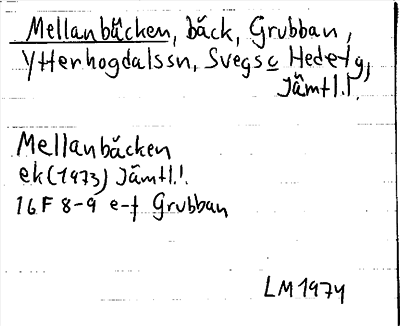 Mellanbäcken, bäck, Grubban,
Ytterhogdalssn, Svegs o Hede tg,
Jämtl.l.
Mellanbäcken
ek (1973) Jämtl.l.
16F 8-9 e-f Grubban
LM 1974